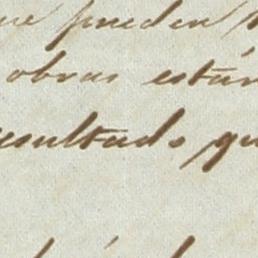 que pueden
obras están
resultado que